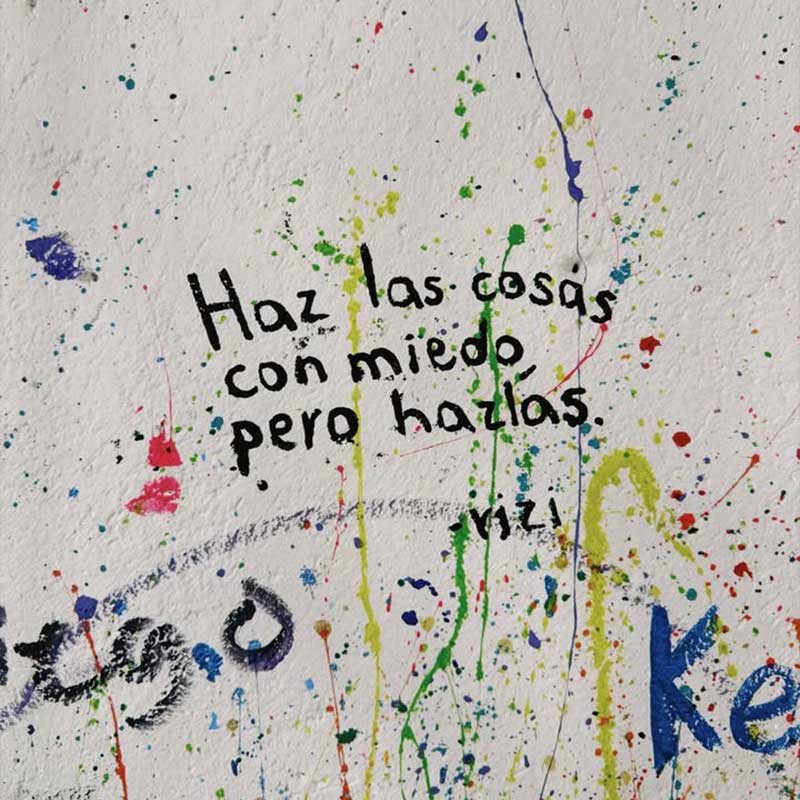 Haz las cosas
con miedo,
pero hazlas.
-vizi
Ke